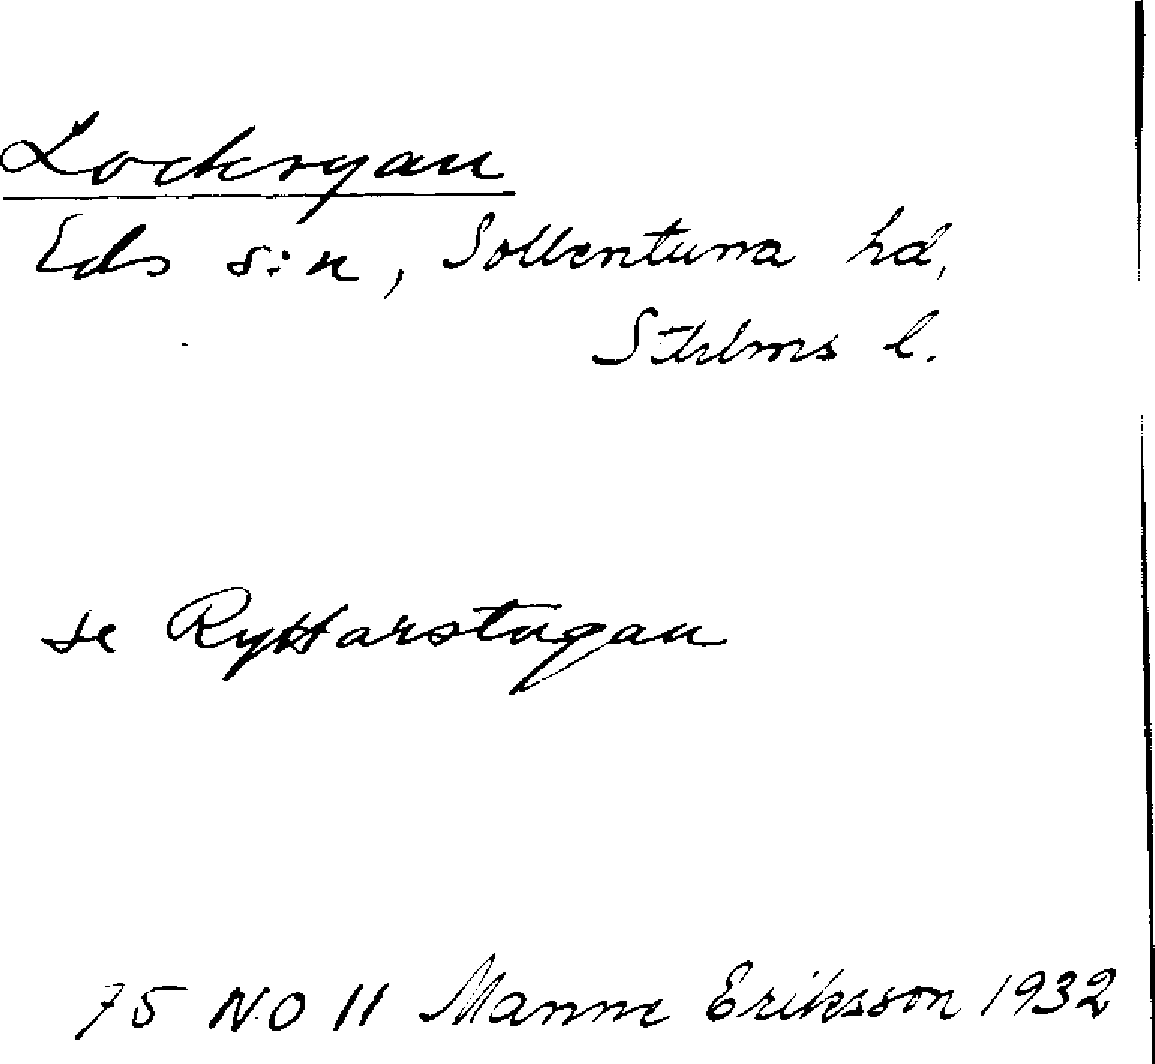 Lockryan
Eds s:n, Sollentuna hd,
Sthlms l.
se Ryttarstugan
75 NO 11 Manne Eriksson 1932